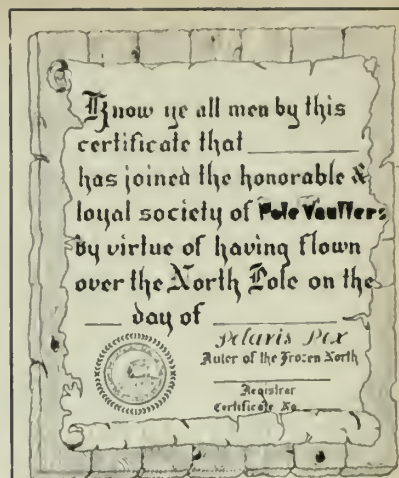 Know ye all men by this
certificate that
has joined the honorable &
loyal society of Pole Vaulters
by virtue of having flown
over the North Pole on the
day of
Polaris Rex
Ruler of the Frozen North
Registrar
Certificate No.